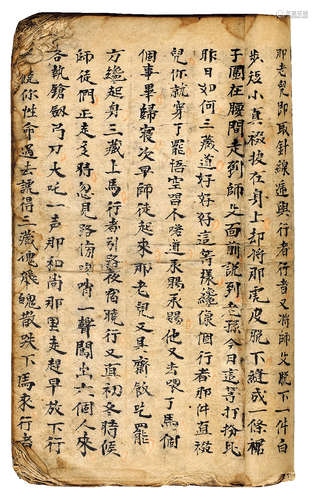 那老兒即取針線遞與行者行者又將師父脫下一件白
步短小直裰披在身上却將那虎皮脫下縫成一條裙
子圍在腰間走到師父面前說到老孫今日這苦打扮比
昨日如何三藏道好好好這等樣纔像個行者那件直裰
兒你就穿了罷悟空唱喏道承賜承賜他又去喂了馬個
個事畢歸寢次早師徒起來那老兒又具齋飯吃罷
方纔起身三藏上馬行者引路夜宿曉行又直初冬時候
師徒們正走多時忽見路傍唿哨一聲闖出六個人來
各執鎗劍弓刀大吒一声那和尚那里走趕早放下行
你性命過去諕得三藏魂飛魄散跌下馬來行者